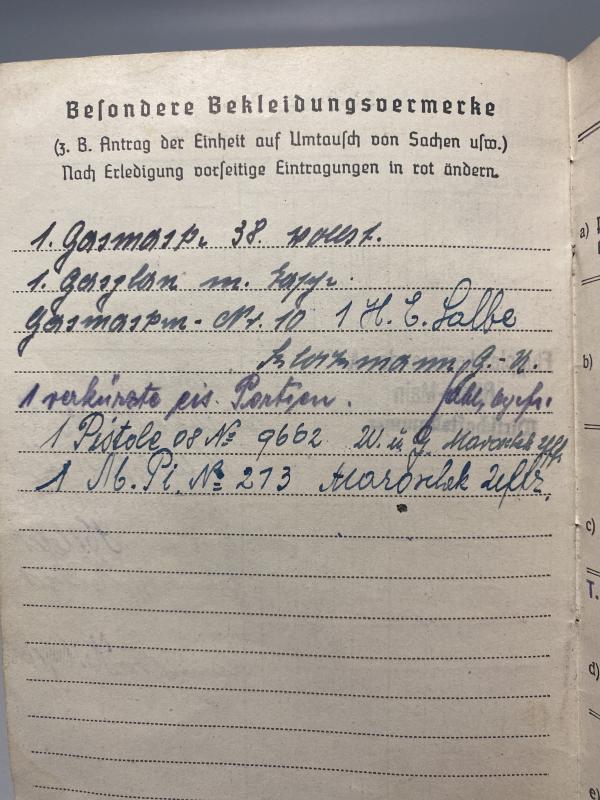 Besondere Bekleidungsvermerke
(z. B. Antrag der Einheit auf Umtausch von Sachen usw.)
Nach Erledigung vorseitige Eintragungen in rot ändern.
1. Gasmask. 38. vollst.
1. Gasplan m.
Gasmasken- Nr. 10 1 H. E. Salbe
G.-U.
1 verkürzte eis. Portion.
1 Pistole 08 № 9662 W. u. G.
1 M. Pi. № 213
a)
b)
c)
T.
d)
e)